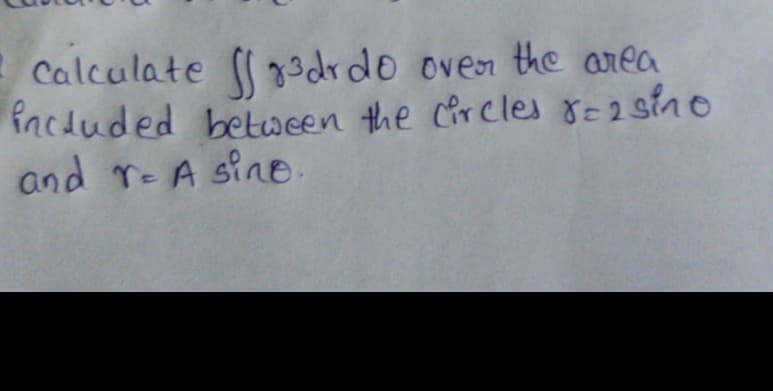 calculate ∫∫ r3drdθ over the area
included between the circles r=2sinθ
and r= A sinθ.